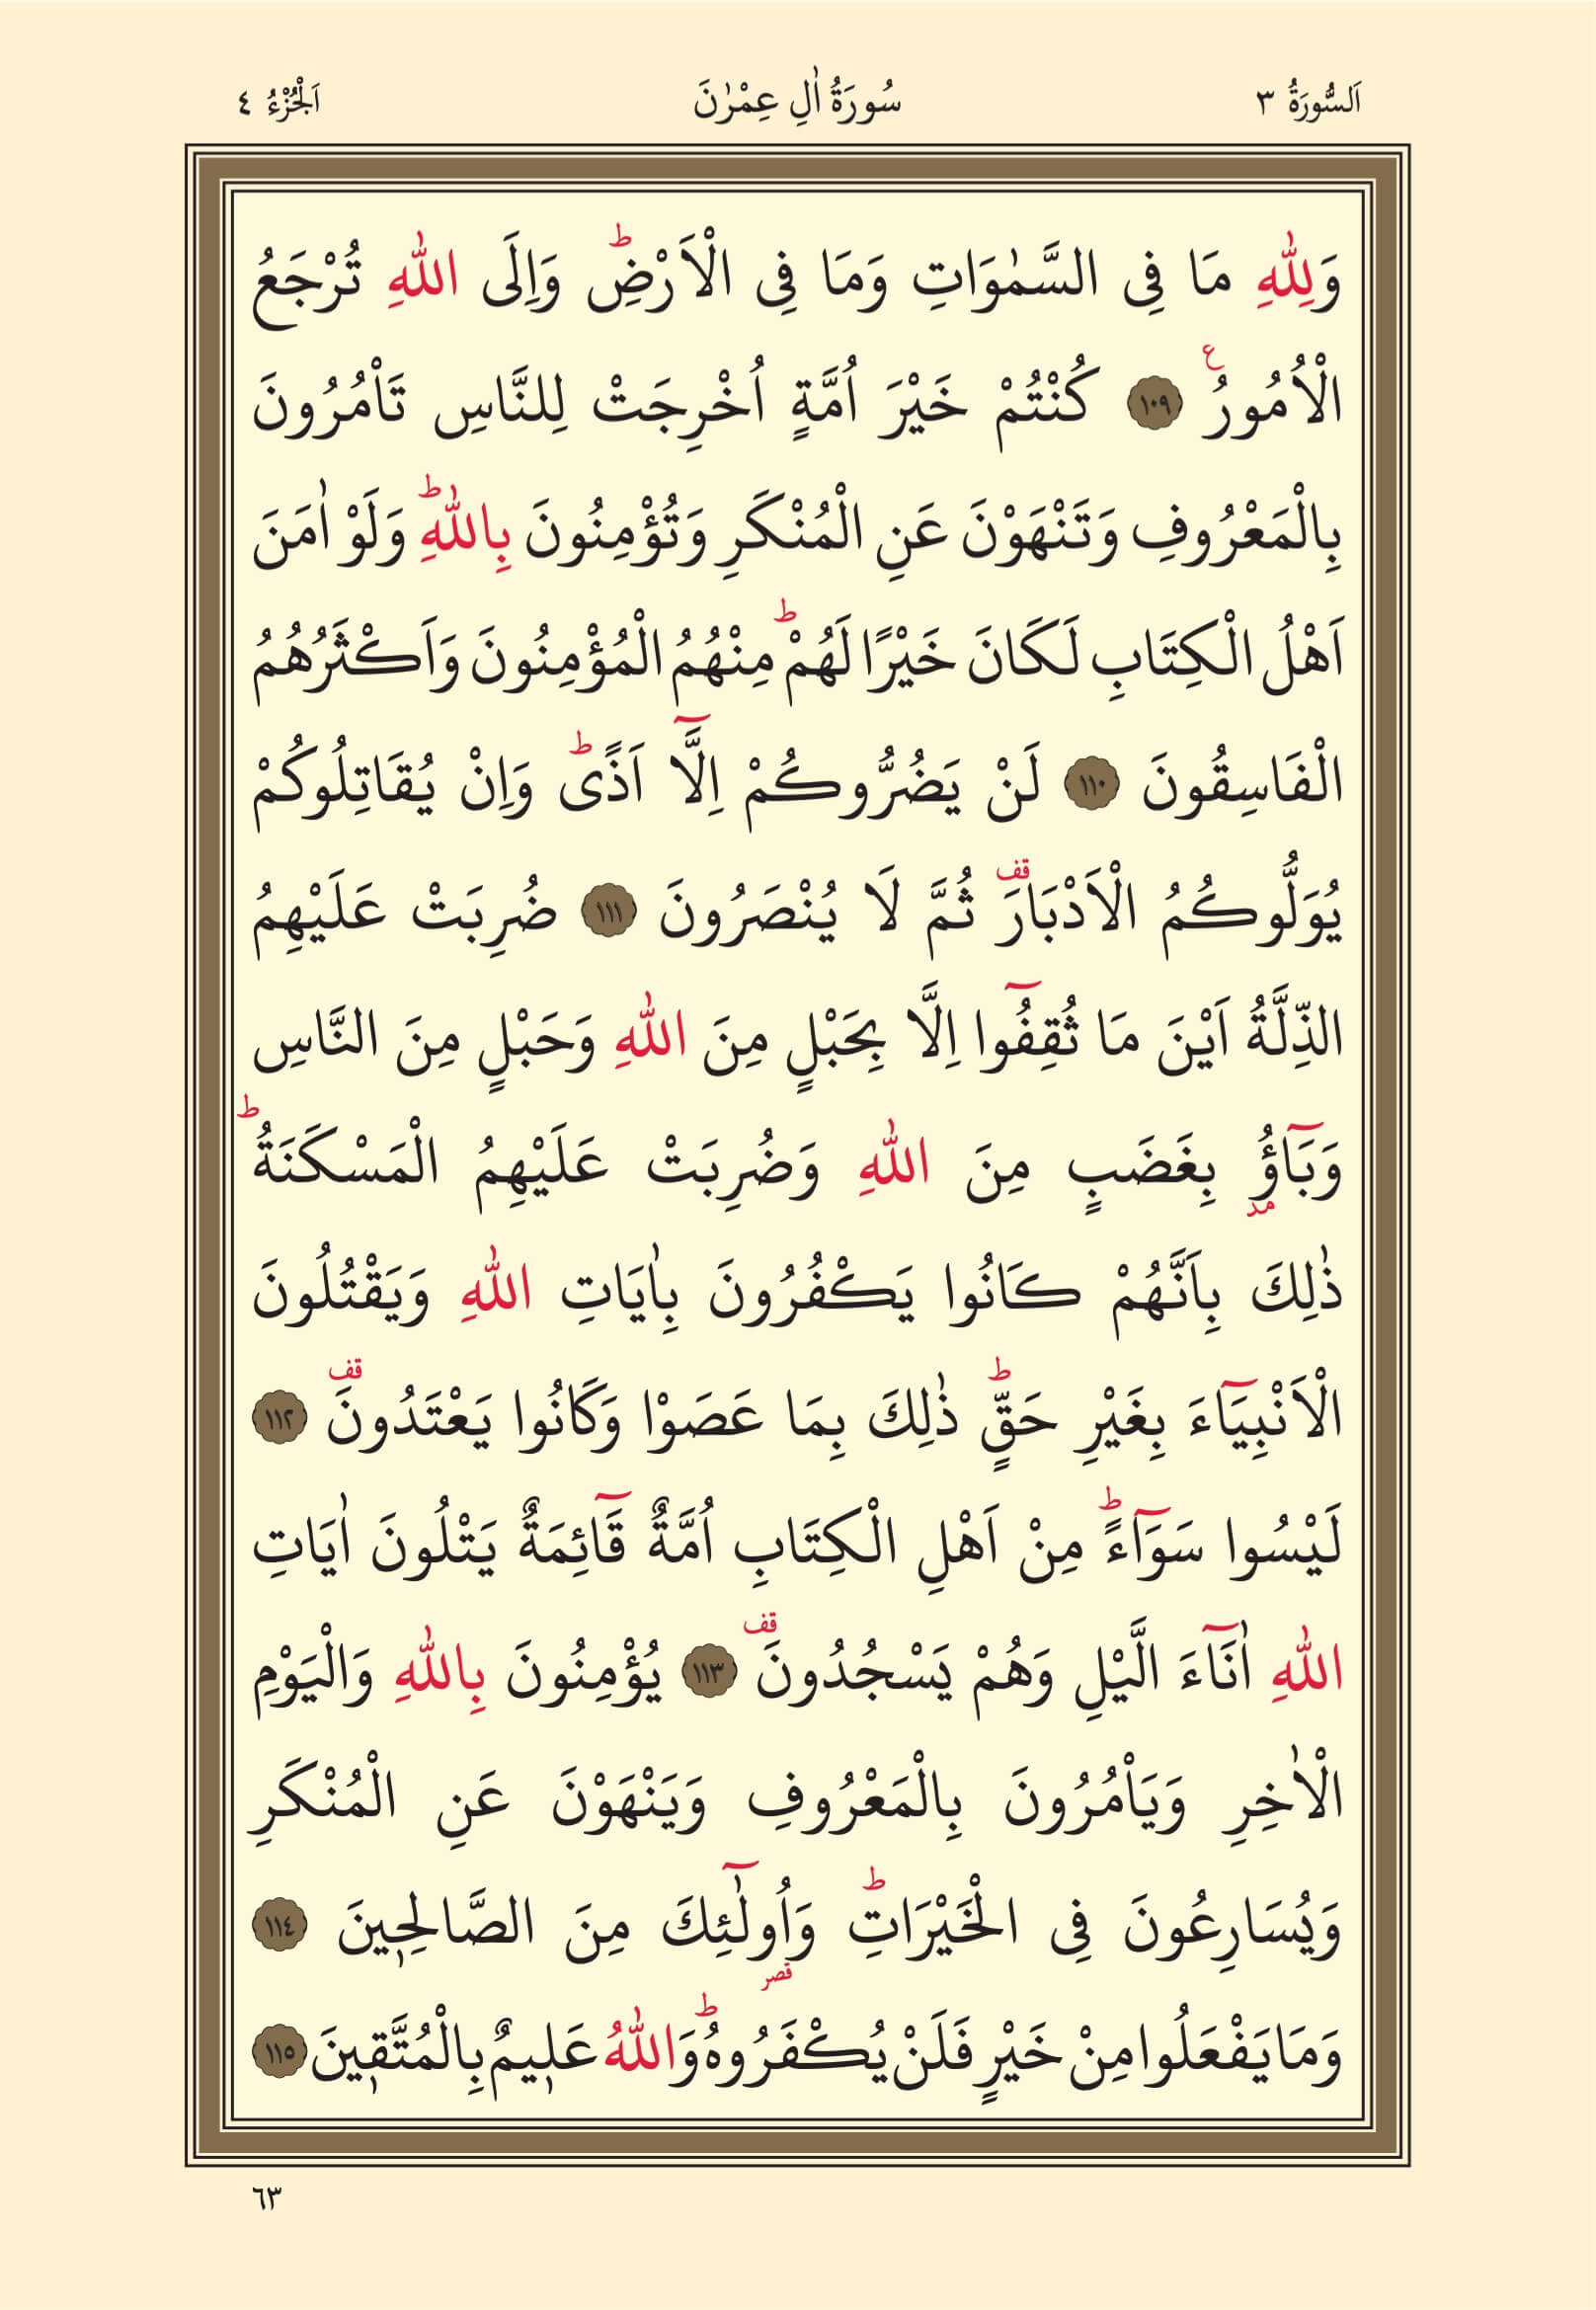 اَلسُّورَةُ ٣ سُورَةُ اٰلِ عِمْرٰنَ اَلْجُزْءُ ٤
وَلِلّٰهِ مَا فِى السَّمٰوَاتِ وَمَا فِى الْاَرْضِۜ وَاِلَى اللّٰهِ تُرْجَعُ
الْاُمُورُ۟ ﴿١٠٩﴾ كُنْتُمْ خَيْرَ اُمَّةٍ اُخْرِجَتْ لِلنَّاسِ تَاْمُرُونَ
بِالْمَعْرُوفِ وَتَنْهَوْنَ عَنِ الْمُنْكَرِ وَتُؤْمِنُونَ بِاللّٰهِۜ وَلَوْ اٰمَنَ
اَهْلُ الْكِتَابِ لَكَانَ خَيْرًا لَهُمْۜ مِنْهُمُ الْمُؤْمِنُونَ وَاَكْثَرُهُمُ
الْفَاسِقُونَ ﴿١١٠﴾ لَنْ يَضُرُّوكُمْ اِلَّٓا اَذًىۜ وَاِنْ يُقَاتِلُوكُمْ
يُوَلُّوكُمُ الْاَدْبَارَ۠ ثُمَّ لَا يُنْصَرُونَ ﴿١١١﴾ ضُرِبَتْ عَلَيْهِمُ
الذِّلَّةُ اَيْنَ مَا ثُقِفُٓوا اِلَّا بِحَبْلٍ مِنَ اللّٰهِ وَحَبْلٍ مِنَ النَّاسِ
وَبَٓاؤُ۫ بِغَضَبٍ مِنَ اللّٰهِ وَضُرِبَتْ عَلَيْهِمُ الْمَسْكَنَةُۜ
ذٰلِكَ بِاَنَّهُمْ كَانُوا يَكْفُرُونَ بِاٰيَاتِ اللّٰهِ وَيَقْتُلُونَ
الْاَنْبِيَٓاءَ بِغَيْرِ حَقٍّۜ ذٰلِكَ بِمَا عَصَوْا وَكَانُوا يَعْتَدُونَ۠ ﴿١١٢﴾
لَيْسُوا سَوَٓاءًۜ مِنْ اَهْلِ الْكِتَابِ اُمَّةٌ قَٓائِمَةٌ يَتْلُونَ اٰيَاتِ
اللّٰهِ اٰنَٓاءَ الَّيْلِ وَهُمْ يَسْجُدُونَ۠ ﴿١١٣﴾ يُؤْمِنُونَ بِاللّٰهِ وَالْيَوْمِ
الْاٰخِرِ وَيَاْمُرُونَ بِالْمَعْرُوفِ وَيَنْهَوْنَ عَنِ الْمُنْكَرِ
وَيُسَارِعُونَ فِى الْخَيْرَاتِۜ وَاُو۬لٰٓئِكَ مِنَ الصَّالِح۪ينَ ﴿١١٤﴾
وَمَا يَفْعَلُوا مِنْ خَيْرٍ فَلَنْ يُكْفَرُوهُۜ وَاللّٰهُ عَل۪يمٌ بِالْمُتَّق۪ينَ ﴿١١٥﴾
٦٣